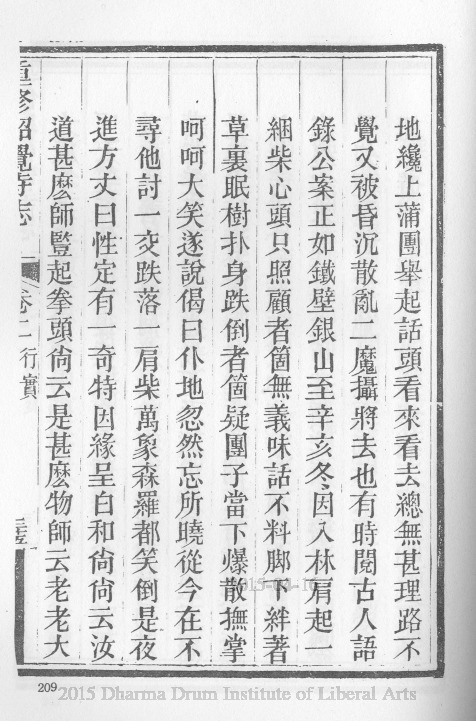 地纔上蒲團舉起話頭看來看去總無甚理路不
覺又被昏沉散亂二魔攝將去也有時閱古人語
錄公案正如鐵壁銀山至辛亥冬因入林肩起一
綑柴心頭只照顧者箇無義味話不料脚下絆著
草裏眠樹扑身跌倒者箇疑團子當下爆散撫掌
呵呵大笑遂說偈曰仆地忽然忘所曉從今在不
尋他討一交跌落一肩柴萬象森羅都笑倒是夜
進方丈曰性定有一奇特因緣呈白和尙尙云汝
道甚麽師豎起拳頭尙云是甚麽物師云老老大
重修昭覺寺志
卷二
行實
209
2015 Dharma Drum Institute of Liberal Arts